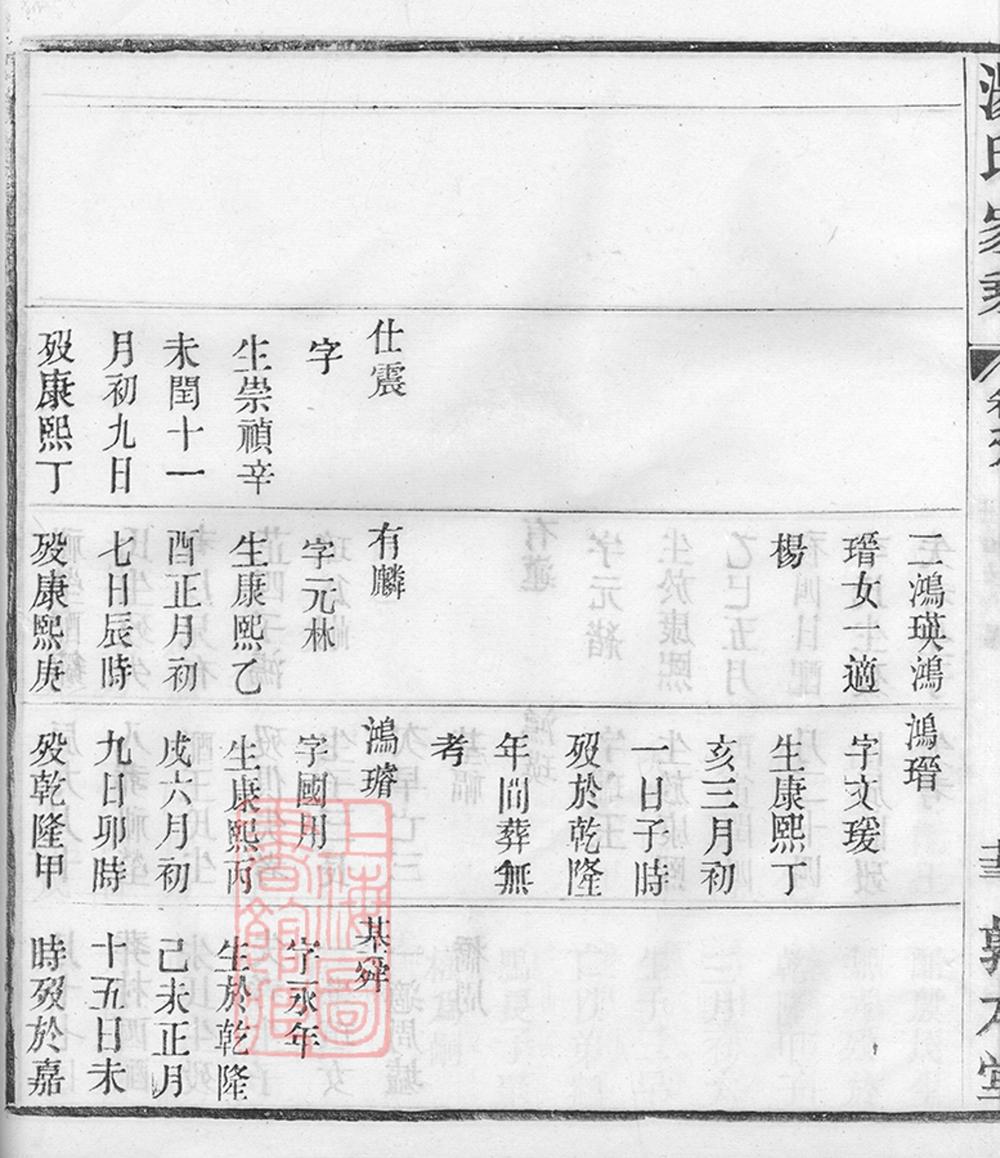 氏家
敦本堂
仕震
字
生崇禎辛
未閏十一
月初九日
歿康熙丁
二鴻瑛鴻
瑨女一適
楊
有麟
字元林
生康熙乙
酉正月初
七日辰時
歿康熙庚
鴻瑨
字文瑗
生康熙丁
亥三月初
一日子時
歿於乾隆
年間葬無
考
鴻璿
字國用
生康熙丙
戌六月初
九日卯時
歿乾隆甲
某舜
字永年
生於乾隆
己未正月
十五日未
時歿於嘉
上海圖書館藏